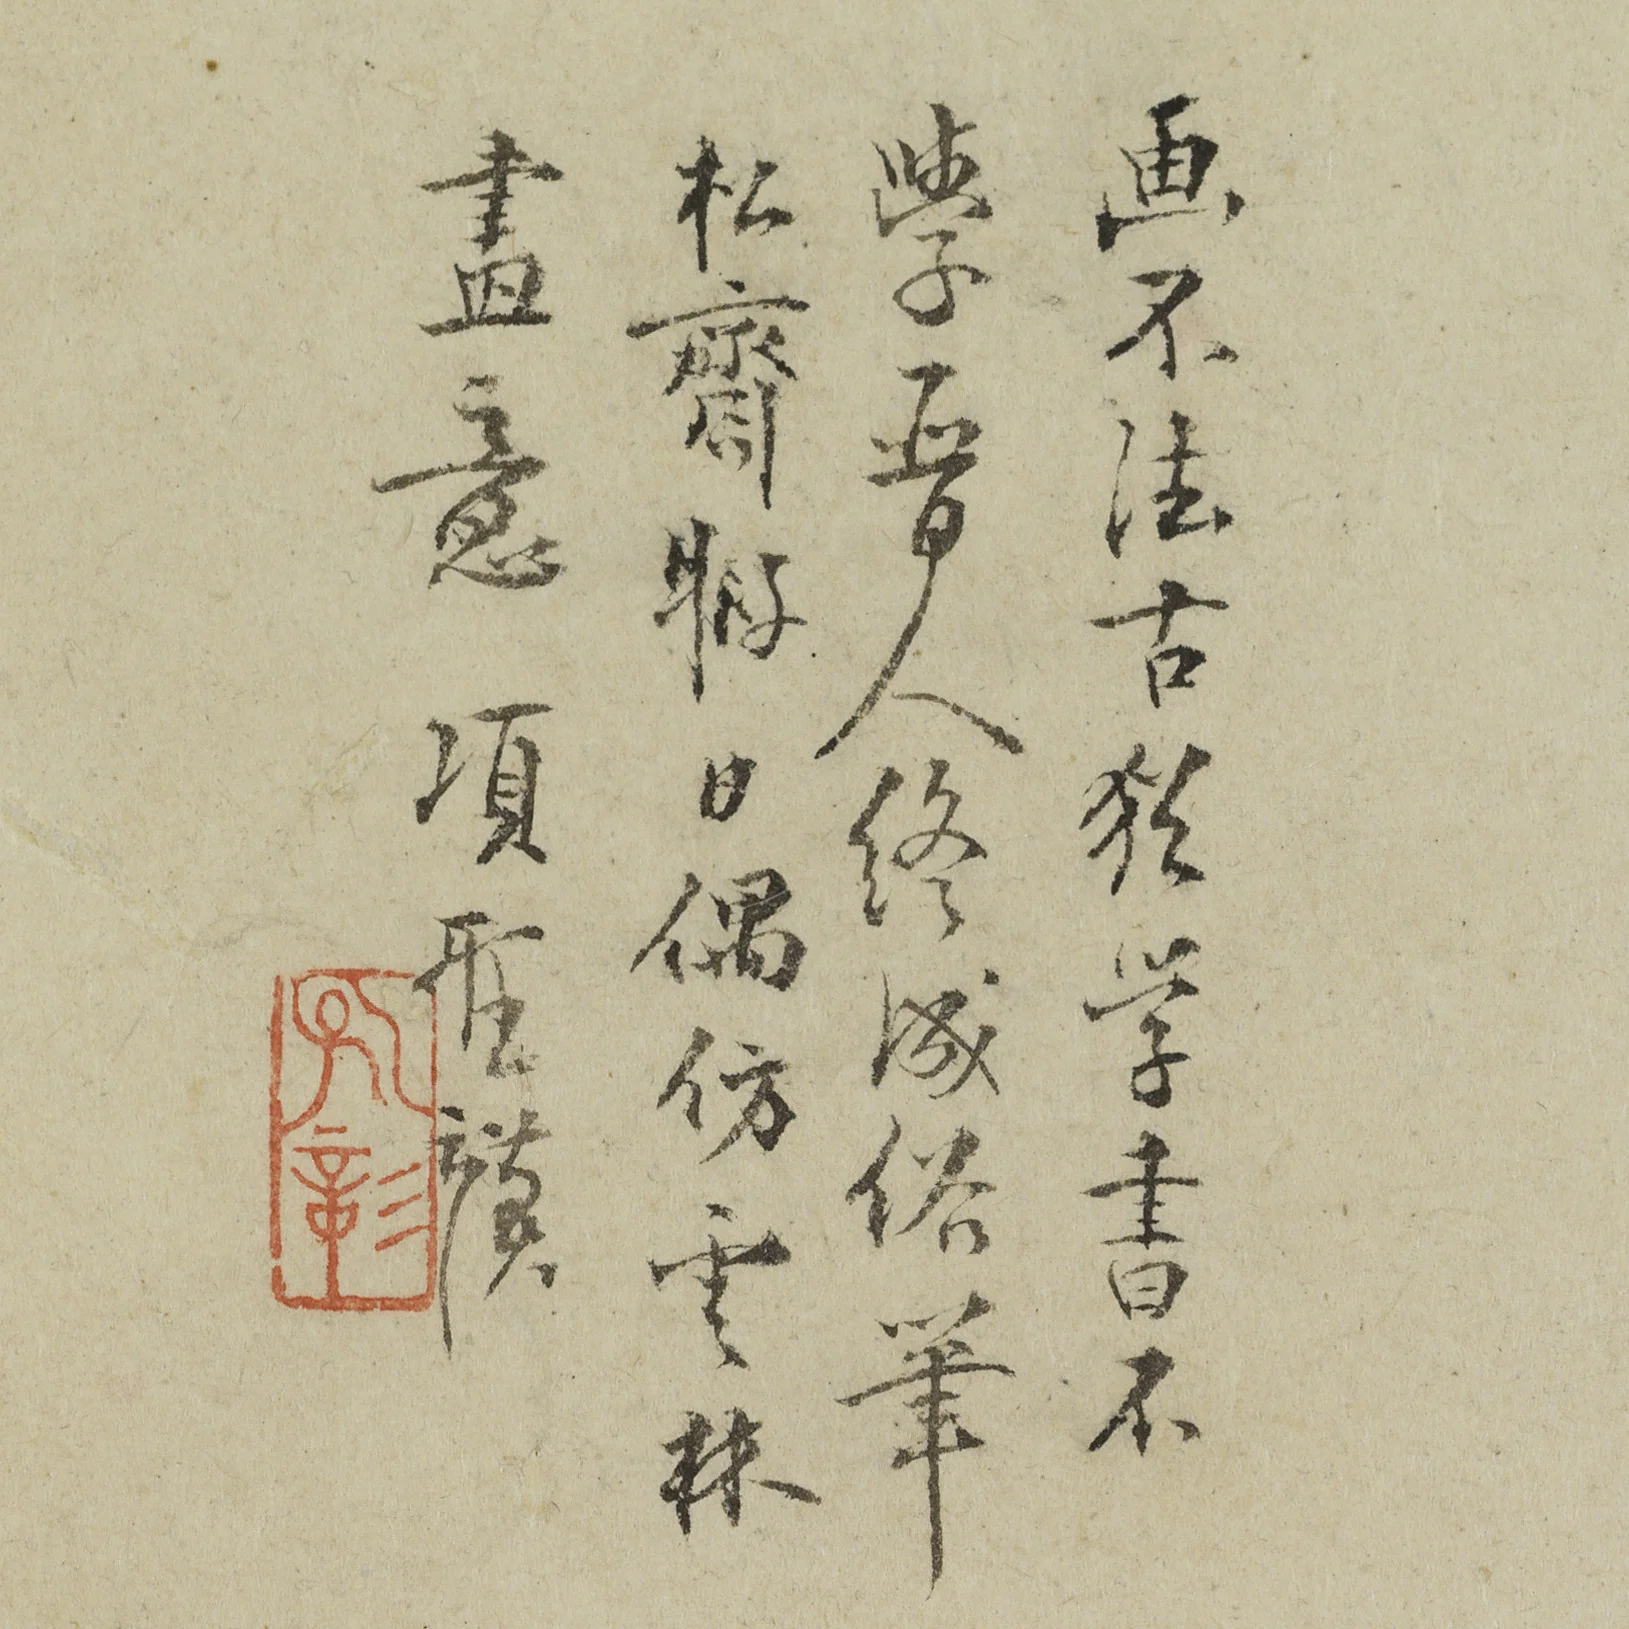 画不法古猶学書不
學晉人終成俗筆
松齋暇日偶仿雲林
畫意 項聖謨
孔彰